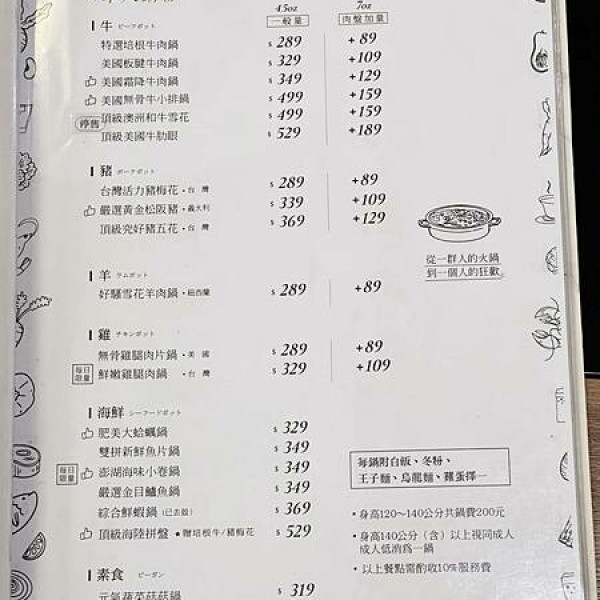 4.5oz 7oz
一般量 肉盤加量
牛 ビーフポット
特選培根牛肉鍋 $ 289 +89
美國板腱牛肉鍋 $ 329 +109
美國霜降牛肉鍋 $ 349 +129
美國無骨牛小排鍋 $ 499 +159
停售 頂級澳洲和牛雪花 $ 499 +159
頂級美國牛肋眼 $ 529 +189
豬 ポークポット
台灣活力豬梅花・台灣 $ 289 +89
嚴選黃金松阪豬・義大利 $ 339 +109
頂級究好豬五花・台灣 $ 369 +129
從一群人的火鍋
到一個人的狂歡。
羊 ラムポット
好騷雪花羊肉鍋・紐西蘭 $ 289 +89
雞 チキンポット
無骨雞腿肉片鍋・美國 $ 289 +89
每日限量 鮮嫩雞腿肉鍋・台灣 $ 329 +109
海鮮 シーフードポット
肥美大蛤蠣鍋 $ 329
雙拼新鮮魚片鍋 $ 349
每日限量 澎湖海味小卷鍋 $ 349
嚴選金目鱸魚鍋 $ 349
綜合鮮蝦鍋 (已去殼) $ 369
頂級海陸拼盤 ★贈培根牛/豬梅花 $ 529
每鍋附白飯、冬粉、
王子麵、烏龍麵、雞蛋擇一
・身高120~140公分共鍋費200元
・身高140公分（含）以上視同成人
成人低消為一鍋
・以上餐點需酌收10%服務費
素食 ビーガン
元氣蔬菜菇菇鍋 $ 319